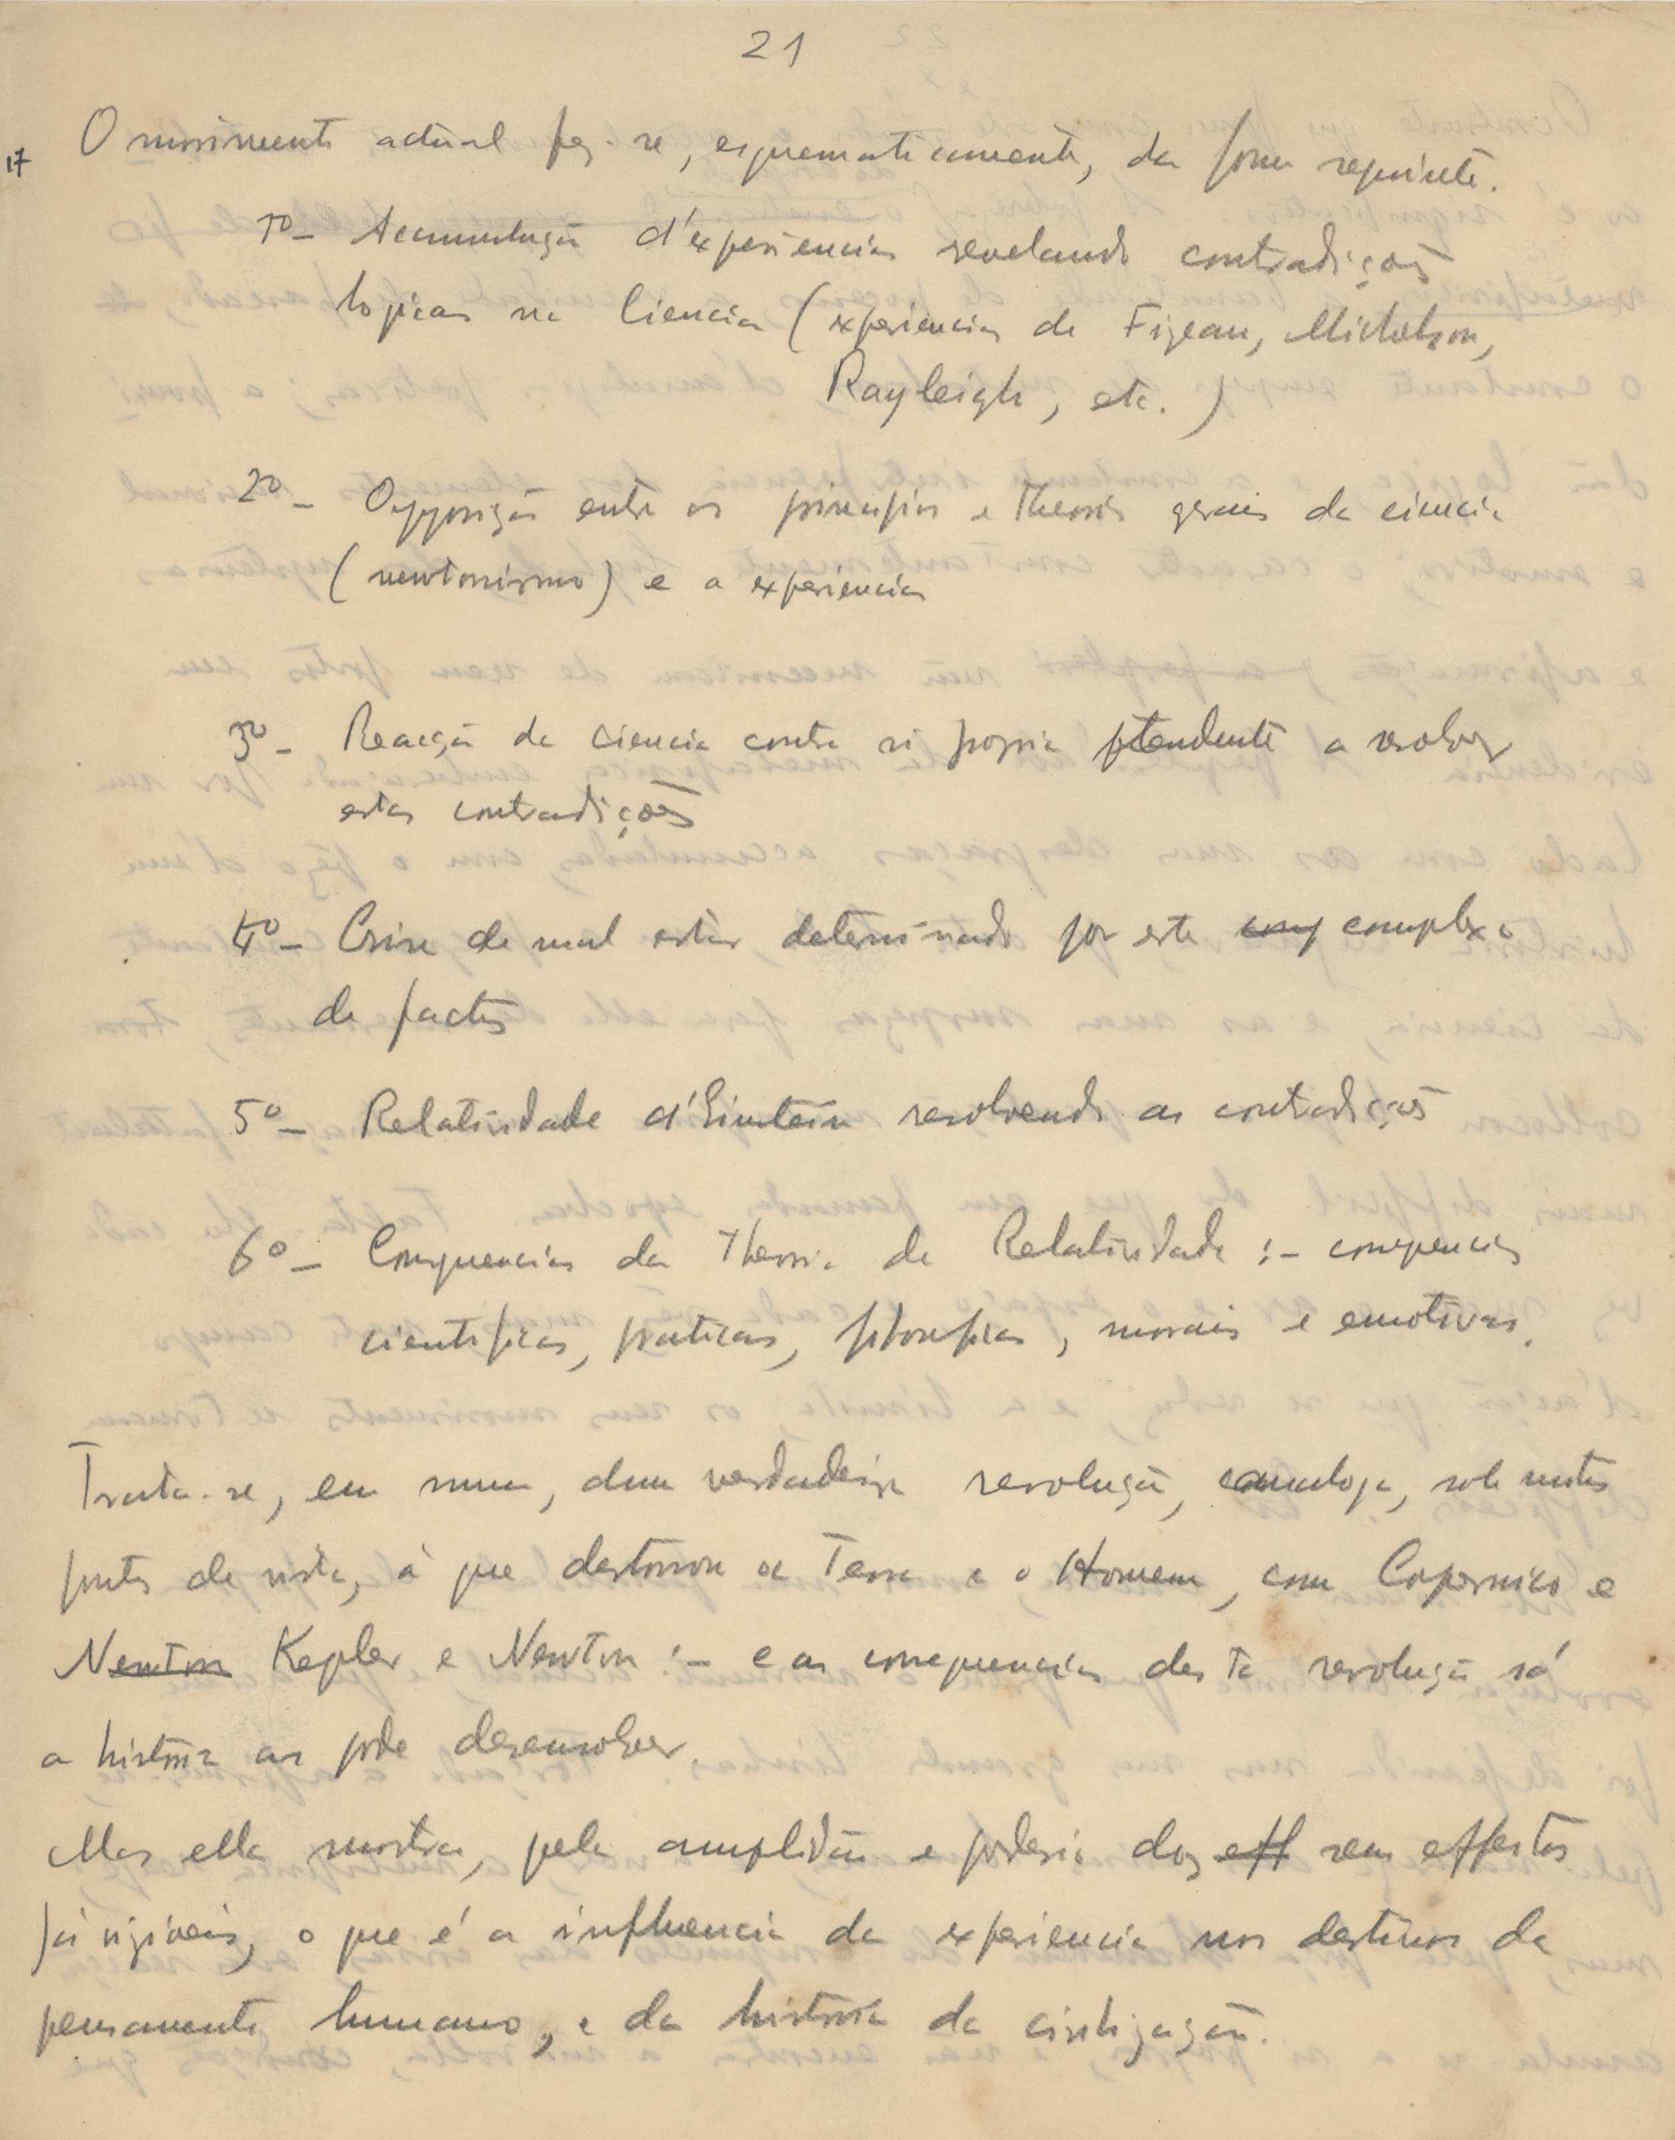 21
17
O movimento actual fez-se, esquematicamente, da forma seguinte.
1º - Accumulação d'experiencias revelando contradições
logicas na Ciencia (experiencias de Fizeau, Michelson,
Rayleigh, etc.)
2º - Opposição entre os principios e Theorias gerais da ciencia
(newtonismo) e a experiencia
3º - Reacção da Ciencia contra si propria tendente a resolver
estas contradições
4º - Crise de mal estar determinado por este comp complexo
de factos
5º - Relatividade d'Einstein resolvendo as contradições
6º - Consequencias da Theoria da Relatividade :- consequencias
cientificas, praticas, filosoficas, morais e emotivas.
Trata-se, em suma, duma verdadeira revolução, analoga, sob muitos
pontos de vista, á que destronou a Terra e o Homem, com Copernico e
Newton Kepler e Newton :- e as consequencias desta revolução só
a historia as pode desenvolver.
Mas ella mostra, pela amplidão e poderio dos eff seus effeitos
já visiveis, o que é a influencia da experiencia nos destinos do
pensamento humano, e da historia da civilização.